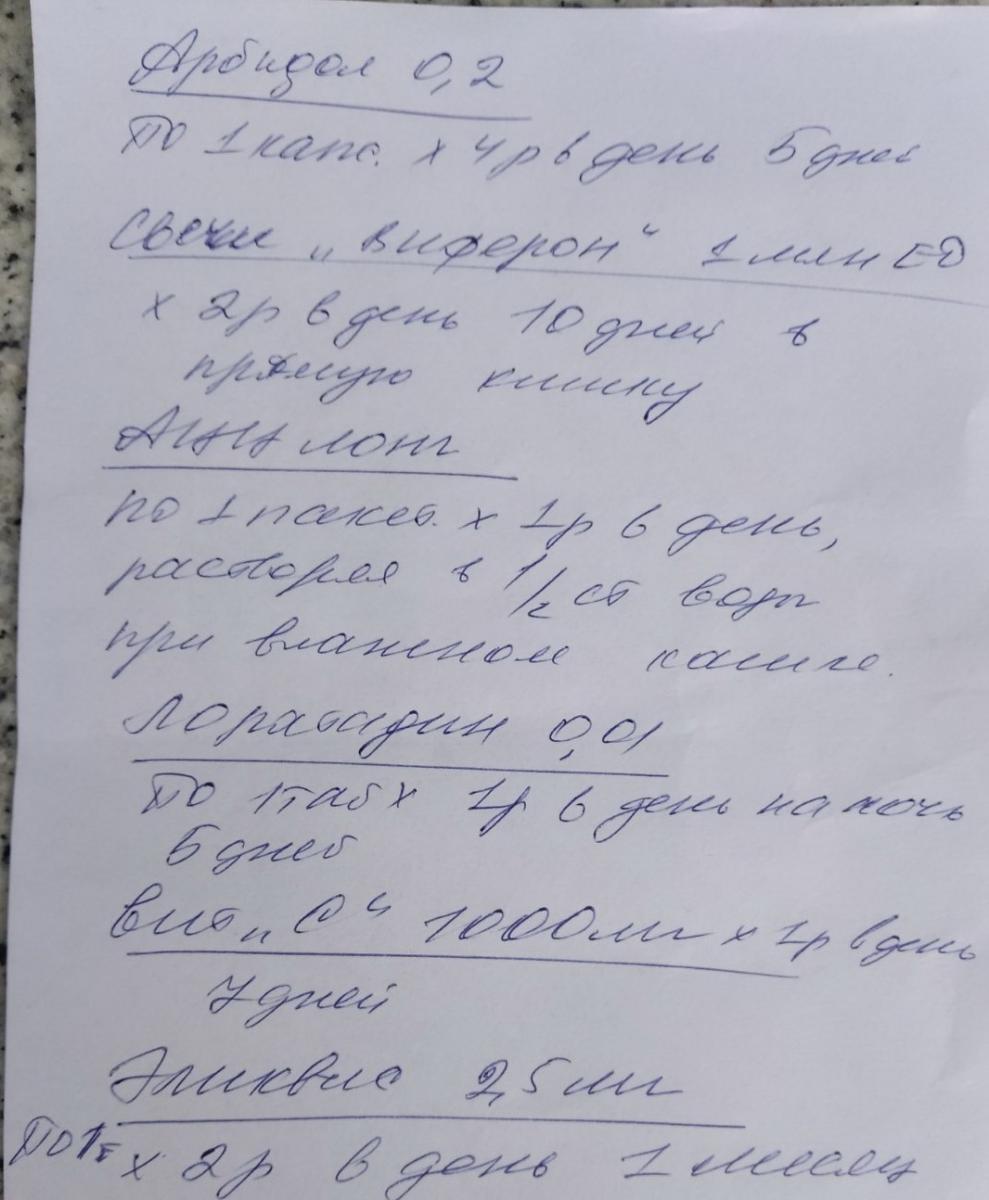 Арбидол 0,2
По 1 капс. х 4 р в день 5 дней
Свечи „Виферон“ 1 млн ЕД
х 2 р в день 10 дней в
прямую кишку
АЦЦ лонг
по 1 пакет. х 1 р в день,
растворяя в 1/2 ст воды
при влажном кашле.
Лоратадин 0,01
По 1 таб х 1 р в день на ночь
5 дней
вит „С“ 1000 мг х 1 р в день
7 дней
Эликвис 2,5 мг
По 1т х 2 р в день 1 месяц